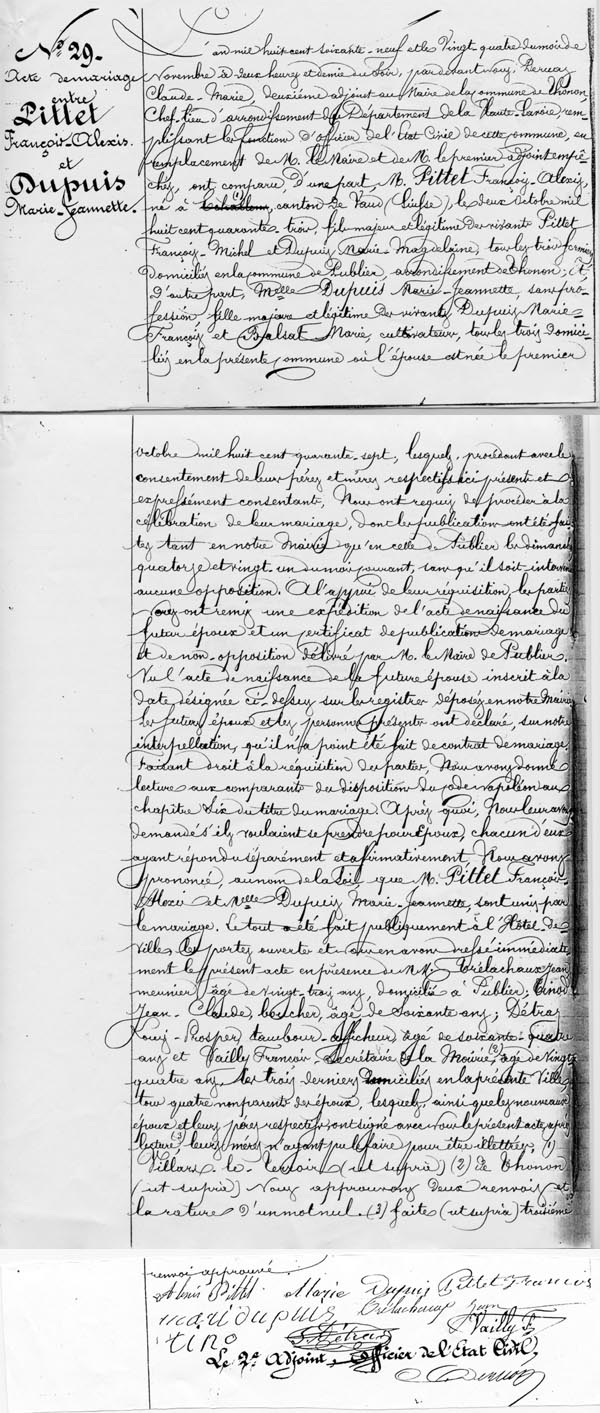 N° 29.
Acte de mariage
entre
Pittet
François-Alexis.
et
Dupuis
Marie-Jeannette.
L'an mil huit cent soixante-neuf et le Vingt-quatre du mois de
Novembre à deux heures et demie du soir, pardevant Nous,
Claude-Marie, deuxième adjoint au Maire de la commune de Thonon,
Chef-lieu d'arrondissement du Département de la Haute-Savoie, rem-
plissant les fonctions d'officier de l'Etat Civil de cette commune, en
remplacement de M. le Maire et de M. le premier adjoint empê-
chés, ont comparu, D'une part, M. Pittet François-Alexis,
né à canton de Vaud (Suisse), le deux Octobre mil
huit cent quarante-trois, fils majeur et légitime des vivants Pittet
François-Michel et Dupuis Marie-Magdelaine, tous les trois fermiers
domiciliés en la commune de Publier, arrondissement de Thonon; Et
D'autre part, Melle Dupuis Marie-Jeannette, sans pro-
fession, fille majeure et légitime des vivants Dupuis Marie-
François et Balsat Marie, cultivateurs, tous les trois domici-
liés en la présente commune où l'épouse est née le premier
Octobre mil huit cent quarante-sept, lesquels, procédant avec le
consentement de leurs pères et mères respectifs ici présents et
expressément consentant, Nous ont requis de procéder à la
célébration de leur mariage, dont les publications ont été fai-
tes tant en notre Mairie qu'en celle de Publier les dimanches
quatorze et vingt-un du mois courant, sans qu'il soit intervenu
aucune opposition. A l'appui de leur réquisition, les parties
Nous ont remis une expédition de l'acte de naissance du
futur époux et un certificat de publications de mariage
et de non-opposition délivré par M. le Maire de Publier.
Vu l'acte de naissance de la future épouse inscrit à la
date désignée ci-dessus sur les registres déposés en notre Mairie
Les futurs époux et les personnes présentes ont déclaré, sur notre
interpellation, qu'il n'a point été fait de contrat de mariage.
Faisant droit à la réquisition des parties, Nous avons donné
lecture aux comparants des dispositions du code Napoléon au
chapitre six du titre du mariage. Après quoi, Nous leur avons
demandé s'ils voulaient se prendre pour Epoux, chacun d'eux
ayant répondu séparément et affirmativement, Nous avons
prononcé, au nom de la Loi, que M. Pittet François-
Alexis et Melle Dupuis Marie-Jeannette, sont unis par
le mariage. Le tout a été fait publiquement à l'Hôtel-de-
Ville, les portes ouvertes et en avons dressé immédiate-
ment le présent acte en présence de MM. Trélachaux Jean
meunier, âgé de vingt-trois ans, domicilié à Publier;
Jean-Claude, boucher, âgé de soixante ans; Détraz
Louis-Prosper, tambour-afficheur, âgé de soixante-quatre
ans et Vailly François, Secrétaire de la Mairie, (2) âgé de vingt-
quatre ans, les trois derniers domiciliés en la présente Ville
tous quatre non parents des époux, lesquels, ainsi que les nouveaux
époux et leurs pères respectifs ont signé avec Nous le présent acte après
lecture (3), leurs mères n'ayant pu le faire pour être illettrées. (1)
Villars-le-Terroir (ut suprà) (2) de Thonon
(ut suprà) Nous approuvons deux renvois et
la rature d'un mot nul. (3) faites (ut suprà) troisième
renvoi approuvé.
Alexis Pittet Marie Dupuis Pittet Francois
mari dupuis Trélachaux Jean
Détraz Vailly F.
Le 2e Adjoint, Officier de l'Etat Civil,